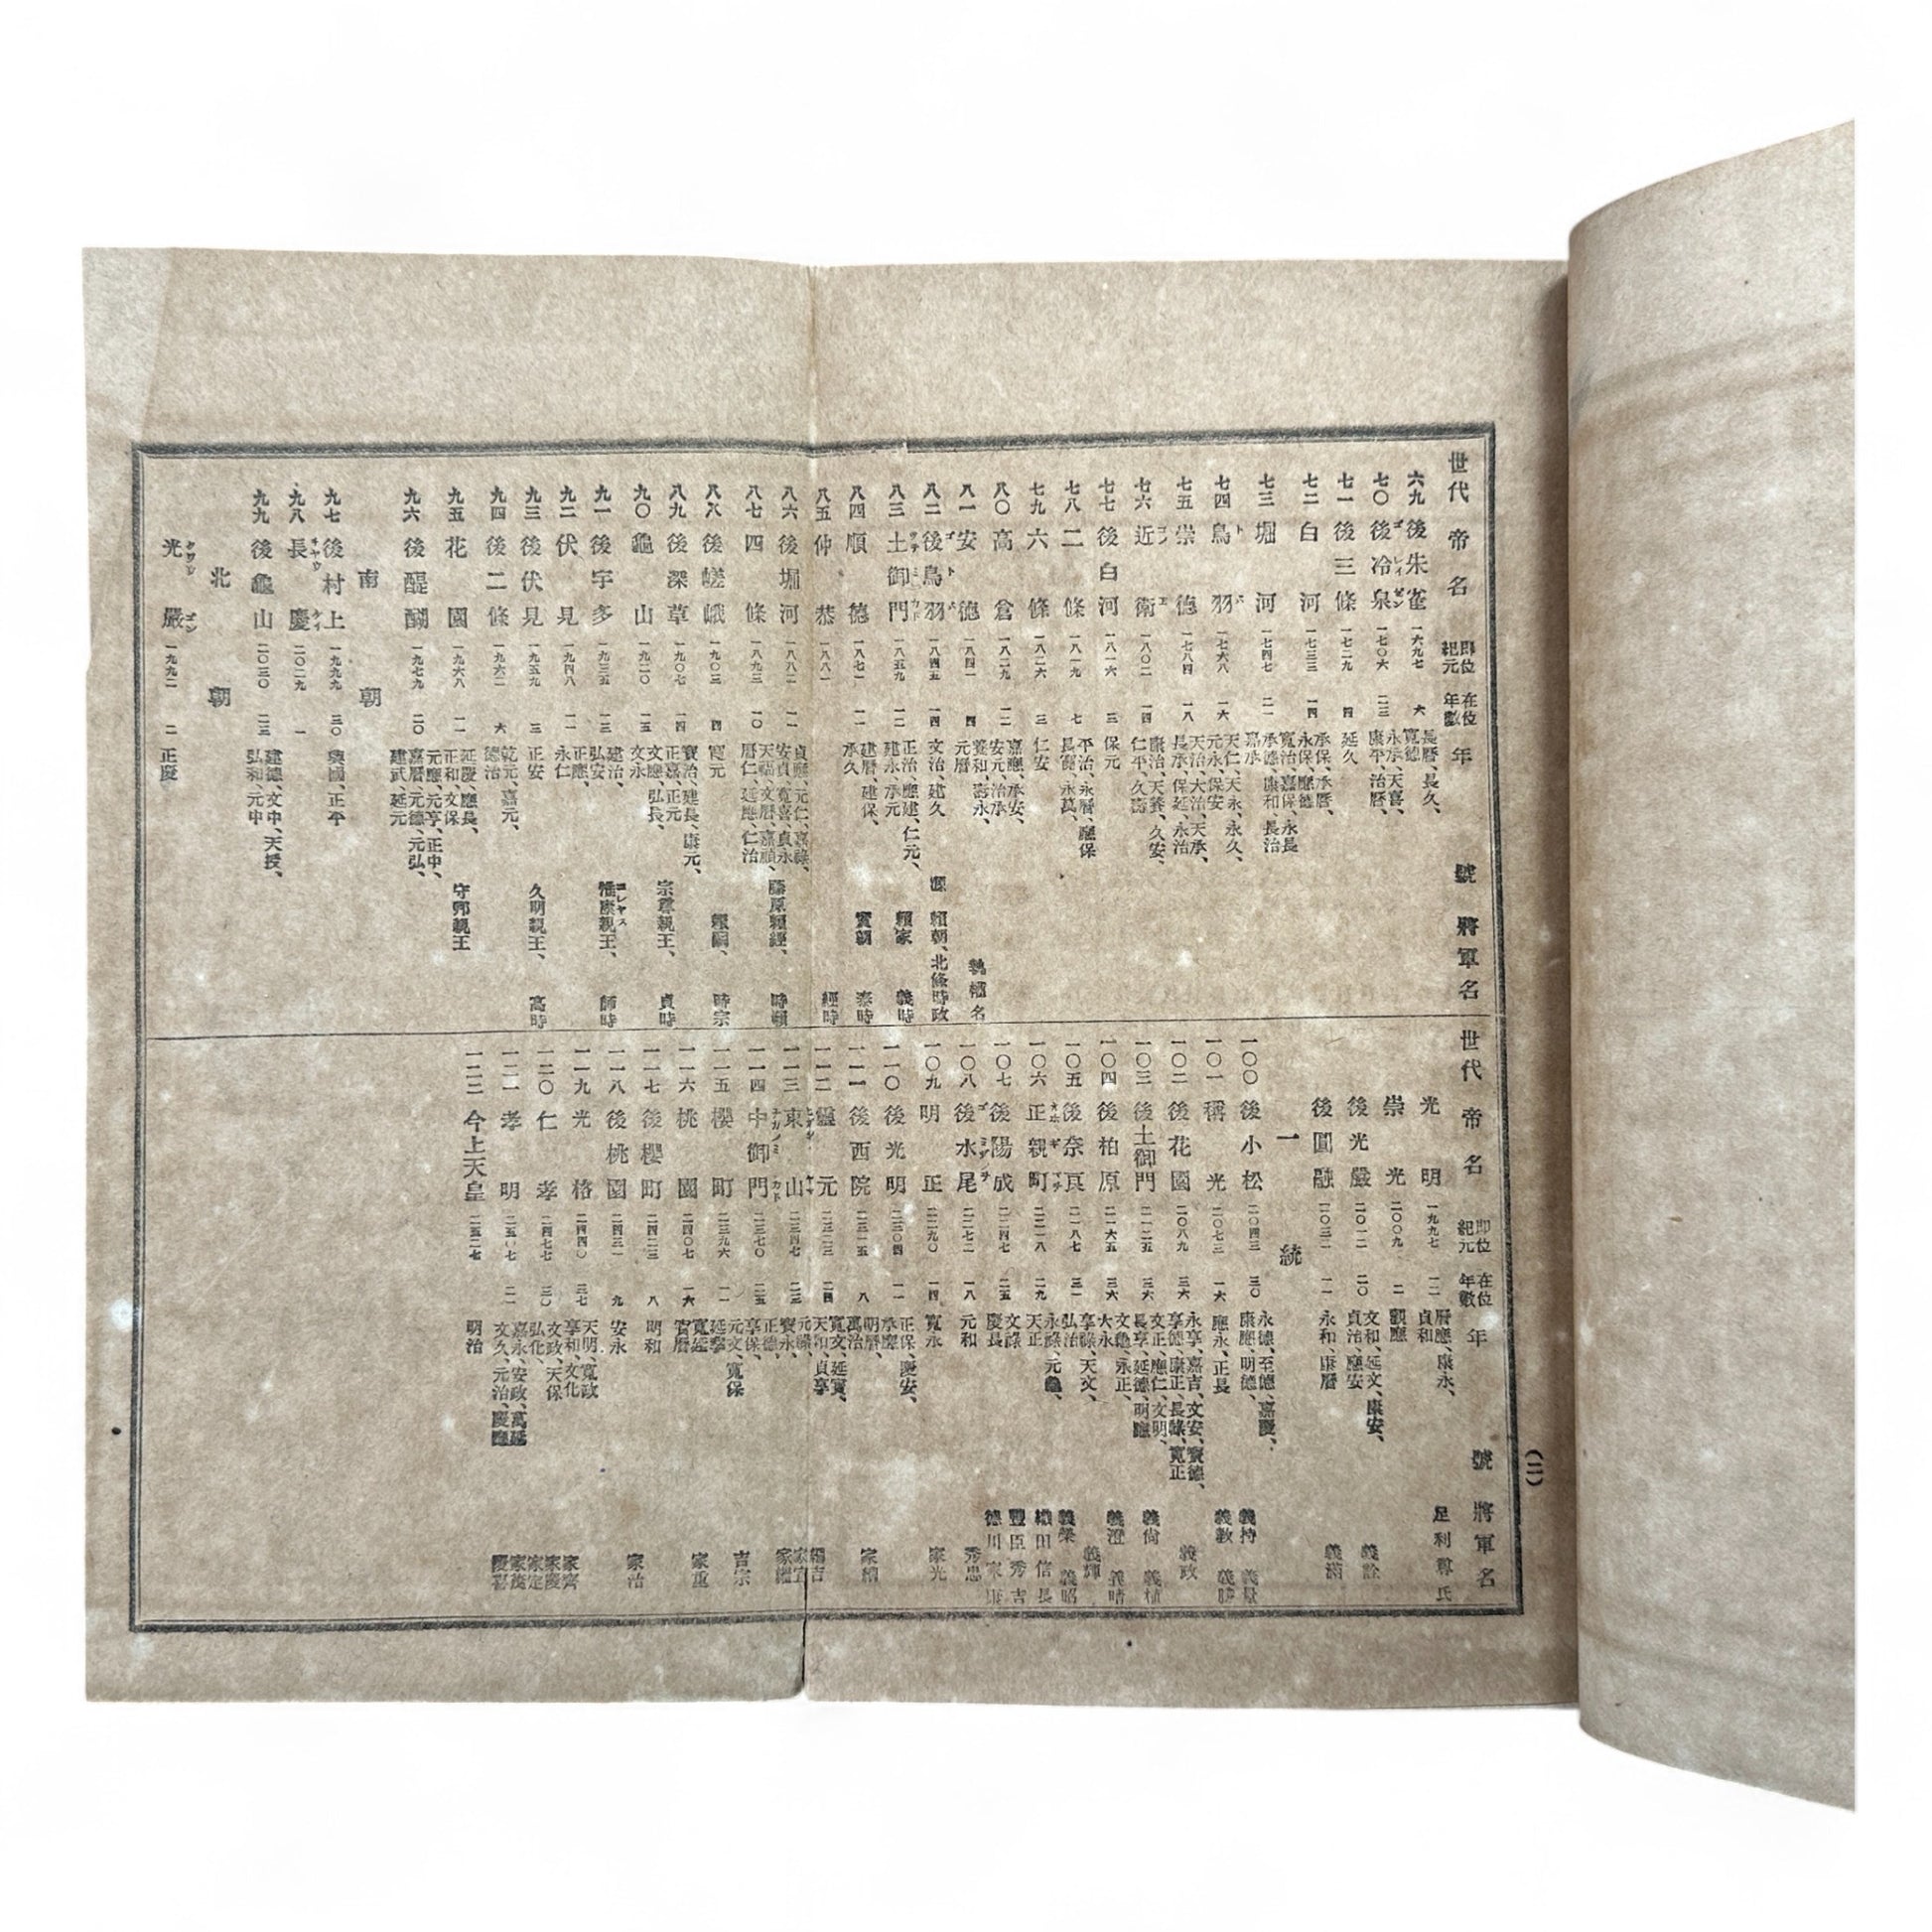 世代 帝名 即位紀元 在位年數 年號 將軍名
六九 後朱雀 一六九七 六 長曆、長久、寬德
七〇 後冷泉 一七〇六 二三 永承、天喜、康平、治曆、
七一 後三條 一七二九 四 延久
七二 白河 一七三三 一四 承保、承曆、永保、應德
七三 堀河 一七四七 二一 寬治、嘉保、永長 承德、康和、長治 嘉承
七四 鳥羽 一七六八 一六 天仁、天永、永久、元永、保安
七五 崇德 一七八四 一八 天治、大治、天承、長承、保延、永治
七六 近衛 一八〇二 一四 康治、天養、久安、仁平、久壽
七七 後白河 一八一六 三 保元
七八 二條 一八一九 七 平治、永曆、應保 長寬、永萬、
七九 六條 一八二六 三 仁安
八〇 高倉 一八二九 一二 嘉應、承安、安元、治承
執權名
八一 安德 一八四一 四 養和、壽永、元曆
八二 後鳥羽 一八四五 一四 文治、建久 源 賴朝、北條時政
八三 土御門 一八五九 一二 正治、應建、仁元、建永、承元 賴家 義時
八四 順德 一八七一 一一 建曆、建保、承久 實朝 泰時
八五 仲恭 一八八一 經時
八六 後堀河 一八八二 一一 貞應、元仁、嘉祿、安貞、寬喜、貞永 藤原賴經、時賴
八七 四條 一八九三 一〇 天福、文曆、嘉禎、曆仁、延應、仁治
八八 後嵯峨 一九〇三 四 寬元 賴嗣、時宗
八九 後深草 一九〇七 一四 寶治、建長、康元、正嘉、正元 宗尊親王、貞時
九〇 龜山 一九二〇 一五 文應、弘長、文永
九一 後宇多 一九三五 一三 建治、弘安 惟康親王、師時
九二 伏見 一九四八 一一 正應、永仁
九三 後伏見 一九五九 三 正安 久明親王、高時
九四 後二條 一九六二 六 乾元、嘉元、德治
九五 花園 一九六八 一一 延慶、應長、正和、文保 守邦親王
九六 後醍醐 一九七九 二〇 元應、元亨、正中、嘉曆、元德、元弘、建武、延元
南朝
九七 後村上 一九九九 三〇 興國、正平
九八 長慶 二〇二九 一
九九 後龜山 二〇三〇 二三 建德、文中、天授、弘和、元中
北朝
光嚴 一九九二 二 正慶
世代 帝名 即位紀元 在位年數 年號 將軍名
(二)
光明 一九九七 一二 曆應、康永、貞和 足利尊氏
崇光 二〇〇九 二 觀應
後光嚴 二〇一二 二〇 文和、延文、康安、貞治、應安 義詮
後圓融 二〇三二 一一 永和、康曆 義滿
一統
一〇〇 後小松 二〇四三 三〇 永德、至德、嘉慶、康應、明德、 義持 義量
一〇一 稱光 二〇七三 一六 應永、正長 義教 義勝
一〇二 後花園 二〇八九 三六 永享、嘉吉、文安、寶德、享德、康正、長祿、寬正 義政
一〇三 後土御門 二一二五 三六 文正、應仁、文明、長享、延德、明應 義尚 義植
一〇四 後柏原 二一六五 三六 文龜、永正、大永 義澄 義晴
一〇五 後奈良 二一八七 三一 享祿、天文、弘治 義輝
義榮 義昭
一〇六 正親町 二二一八 二九 永祿、元龜、天正 織田信長
一〇七 後陽成 二二四七 二五 文祿 慶長 豐臣秀吉
德川家康
一〇八 後水尾 二二七二 一八 元和 秀忠
一〇九 明正 二二九〇 一四 寬永 家光
一一〇 後光明 二三〇四 一一 正保、慶安、承應
一一一 後西院 二三一五 八 明曆、萬治 家綱
一一二 靈元 二三二三 二四 寬文、延寶、天和、貞享 綱吉
一一三 東山 二三四七 二三 元祿、寶永、 家宣 家繼
一一四 中御門 二三七〇 二五 正德、享保、 吉宗
一一五 櫻町 二三九六 一一 元文、寬保 延享 家重
一一六 桃園 二四〇七 一六 寬延 寶曆
一一七 後櫻町 二四二三 八 明和 家治
一一八 後桃園 二四三一 九 安永
一一九 光格 二四四〇 三七 天明、寬政 享和、文化 家齊
一二〇 仁孝 二四七七 三〇 文政、天保 弘化、 家慶
一二一 孝明 二五〇七 二一 嘉永、安政、萬延 文久、元治、慶應 家定 家茂 慶喜
一二二 今上天皇 二五二七 明治